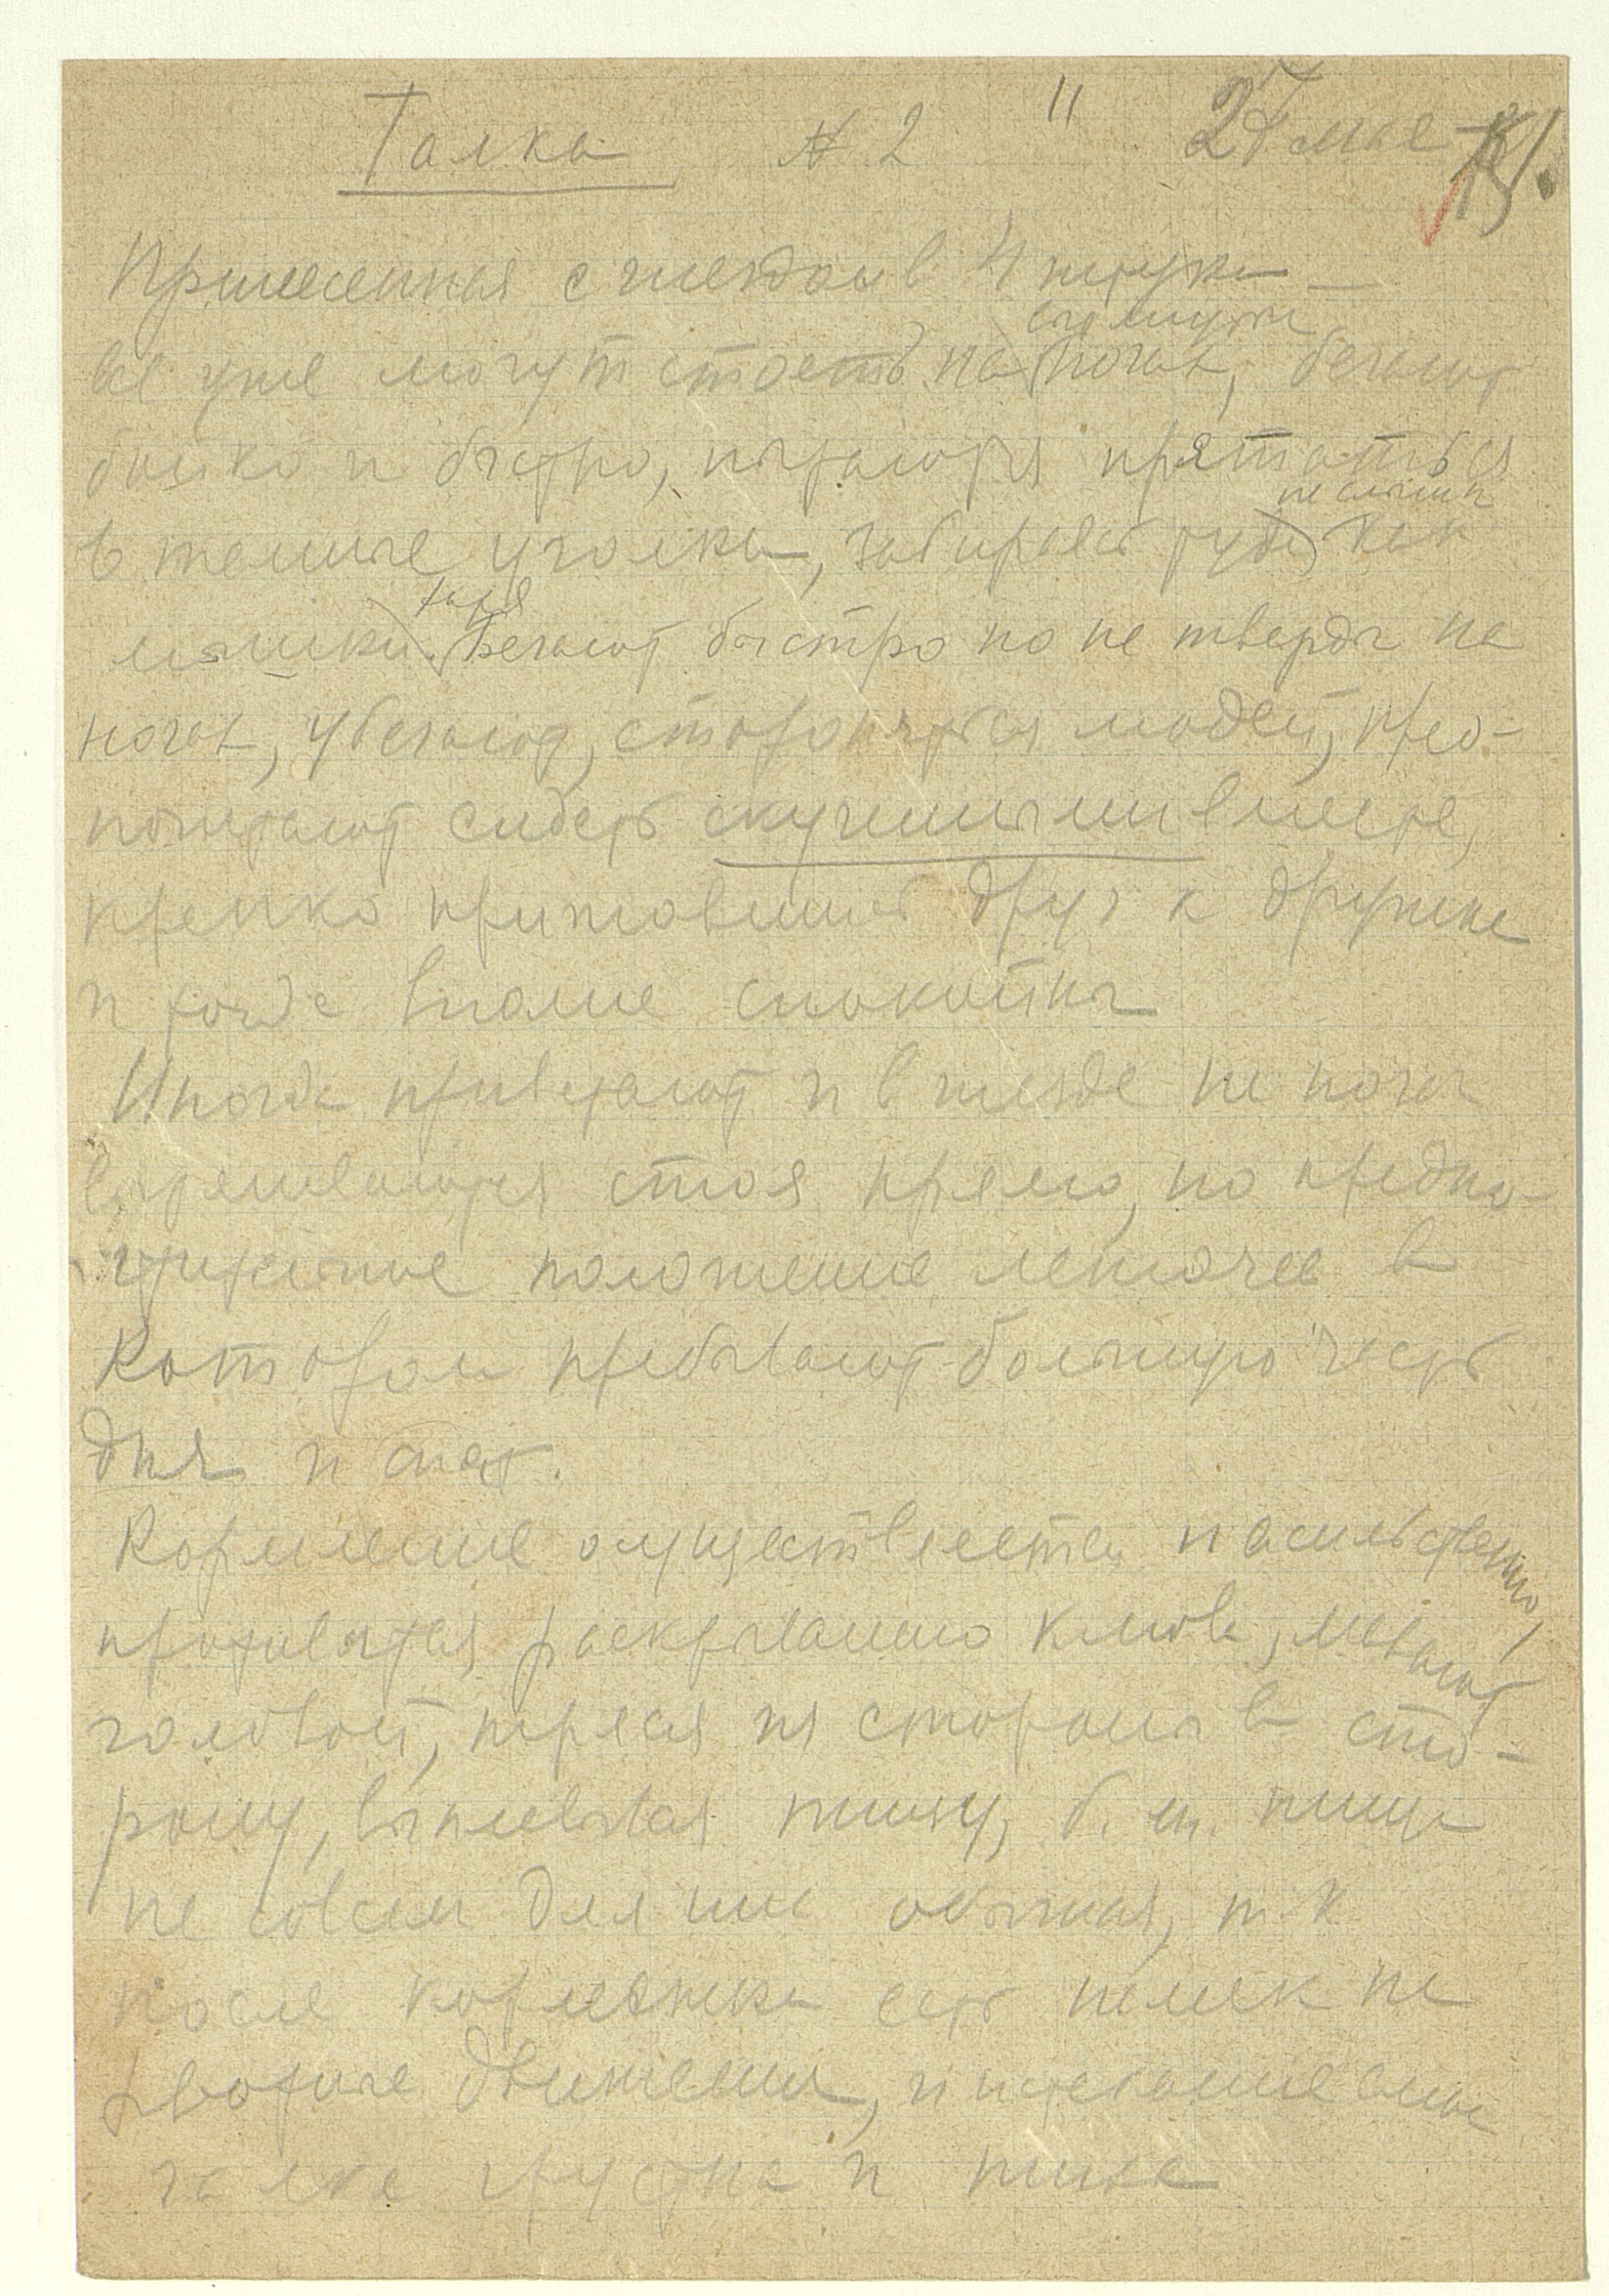 Галка № 2 " 27 мая
Принесенная с гнездом в. 4 штуки —
согнутых
все уже могут стоять на ногах, бегают
бойко и быстро, пытаются прятаться
не слыши
в темные уголки, забираясь туда как
хотя
мышки. Бегают быстро но не тверды на
ногах, убегают, сторонятся людей, пред-
почитают сидеть скученными вместе,
крепко прижавшись друг к дружке
и тогда вполне спокойны
Иногда привстают и в гнезде на ногах
стоя прямо, но предпо-
чтительное положение лежачее в
котором пребывают большую часть
дня и спят.
Кормление осуществляется насильственно,
противятся раскрыванию клюва, мотают
головой, тряся из стороны в сто-
рону, выплевывая пищу, б. м. пища
не совсем для них обычная, т. к.
после кормежки есть намек на
рвотные движения, и
галка грустна и тиха